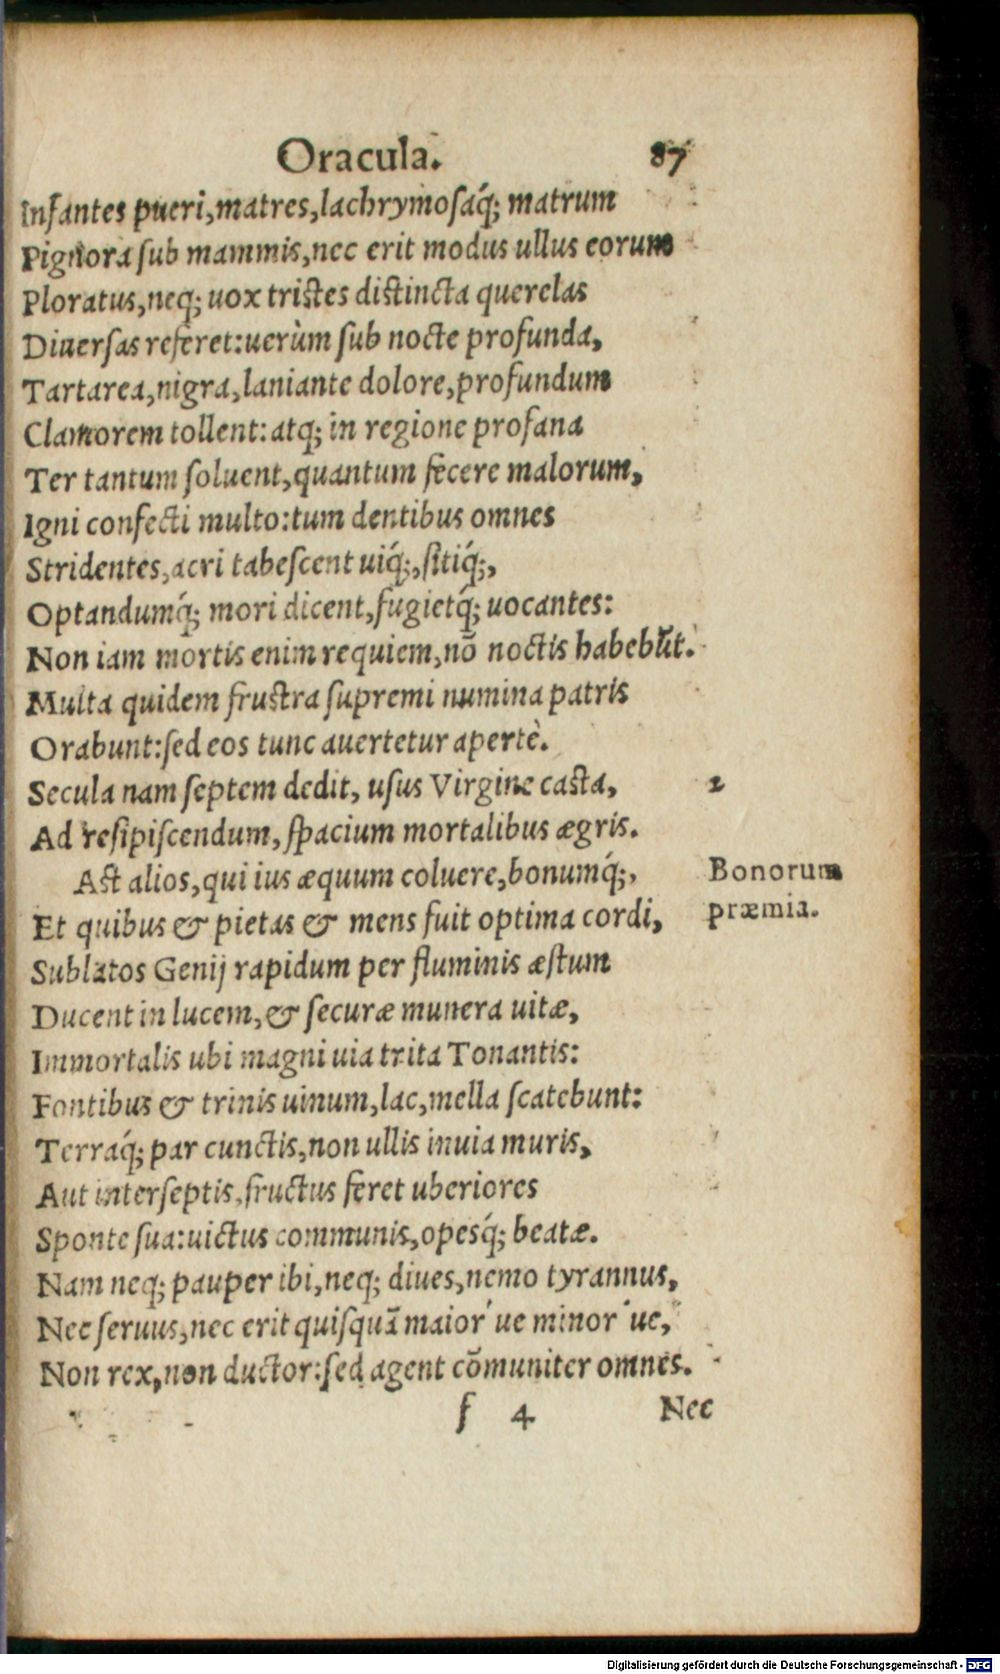 Oracula. 87
Infantes pueri, matres, lachrymosaq́; matrum
Pignora sub mammis, nec erit modus ullus eorum
Ploratus, neq; uox tristes distincta querelas
Diuersas referet: uerùm sub nocte profunda,
Tartarea, nigra, laniante dolore, profundum
Clamorem tollent: atq; in regione profana
Ter tantum soluent, quantum fecere malorum,
Igni confecti multo: tum dentibus omnes
Stridentes, acri tabescent uiq́;, sitiq́;,
Optandumq́; mori dicent, fugietq́; uocantes:
Non iam mortis enim requiem, nō noctis habebūt.
Multa quidem frustra supremi numina patris
Orabunt: sed eos tunc auertetur apertè.
Secula nam septem dedit, usus Virgine casta, 2
Ad resipiscendum, spacium mortalibus ægris.
Ast alios, qui ius æquum coluere, bonumq́;, Bonorum
Et quibus & pietas & mens fuit optima cordi, præmia.
Sublatos Genij rapidum per fluminis æstum
Ducent in lucem, & securæ munera uitæ,
Immortalis ubi magni uia trita Tonantis:
Fontibus & trinis uinum, lac, mella scatebunt:
Terraq́; par cunctis, non ullis inuia muris,
Aut interseptis, fructus feret uberiores
Sponte sua: uictus communis, opesq́; beatæ.
Nam neq; pauper ibi, neq; diues, nemo tyrannus,
Nec seruus, nec erit quisquā maior ue minor ue,
Non rex, non ductor: sed agent cōmuniter omnes.
f 4 Nec
Digitalisierung gefördert durch die Deutsche Forschungsgemeinschaft - DFG